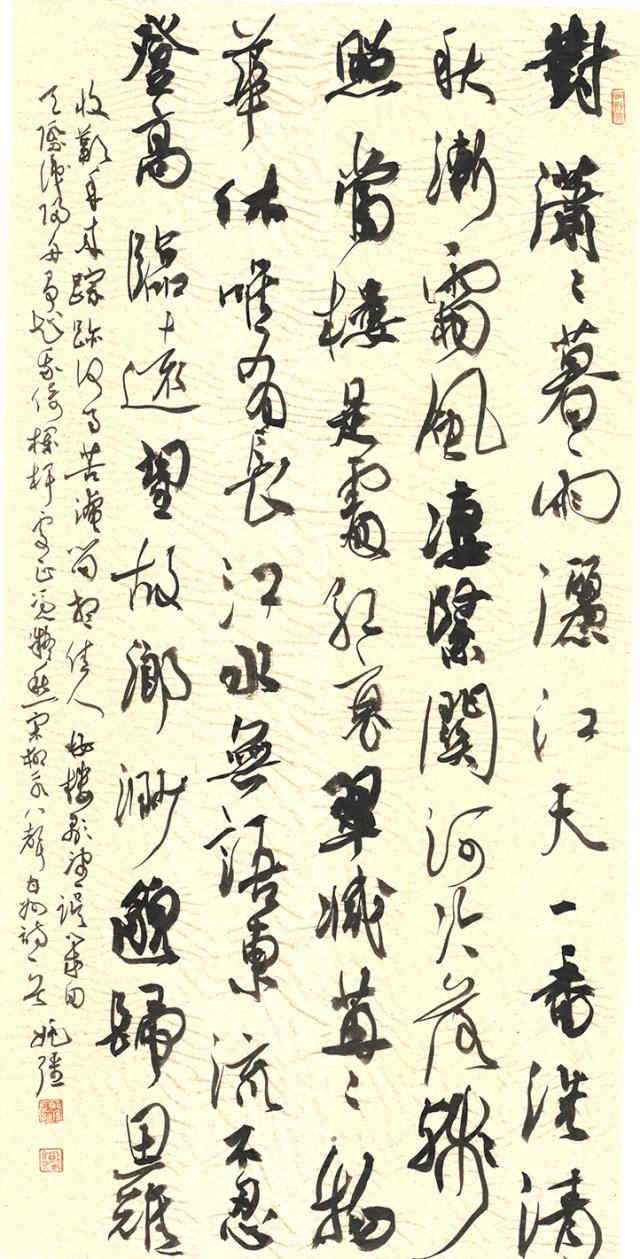 對瀟〻暮雨灑江天一番洗清
秋漸霜風凄緊關河冷落殘
照當樓是處紅衰翠減苒〻物
華休唯有長江水無語東流不忍
登高臨遠望故鄉渺邈歸思難
收歎年來蹤跡何事苦淹留想佳人妝樓顒望誤幾回
天際識歸舟爭知我倚欄杆處正恁凝愁宋柳永八聲甘州詩一首